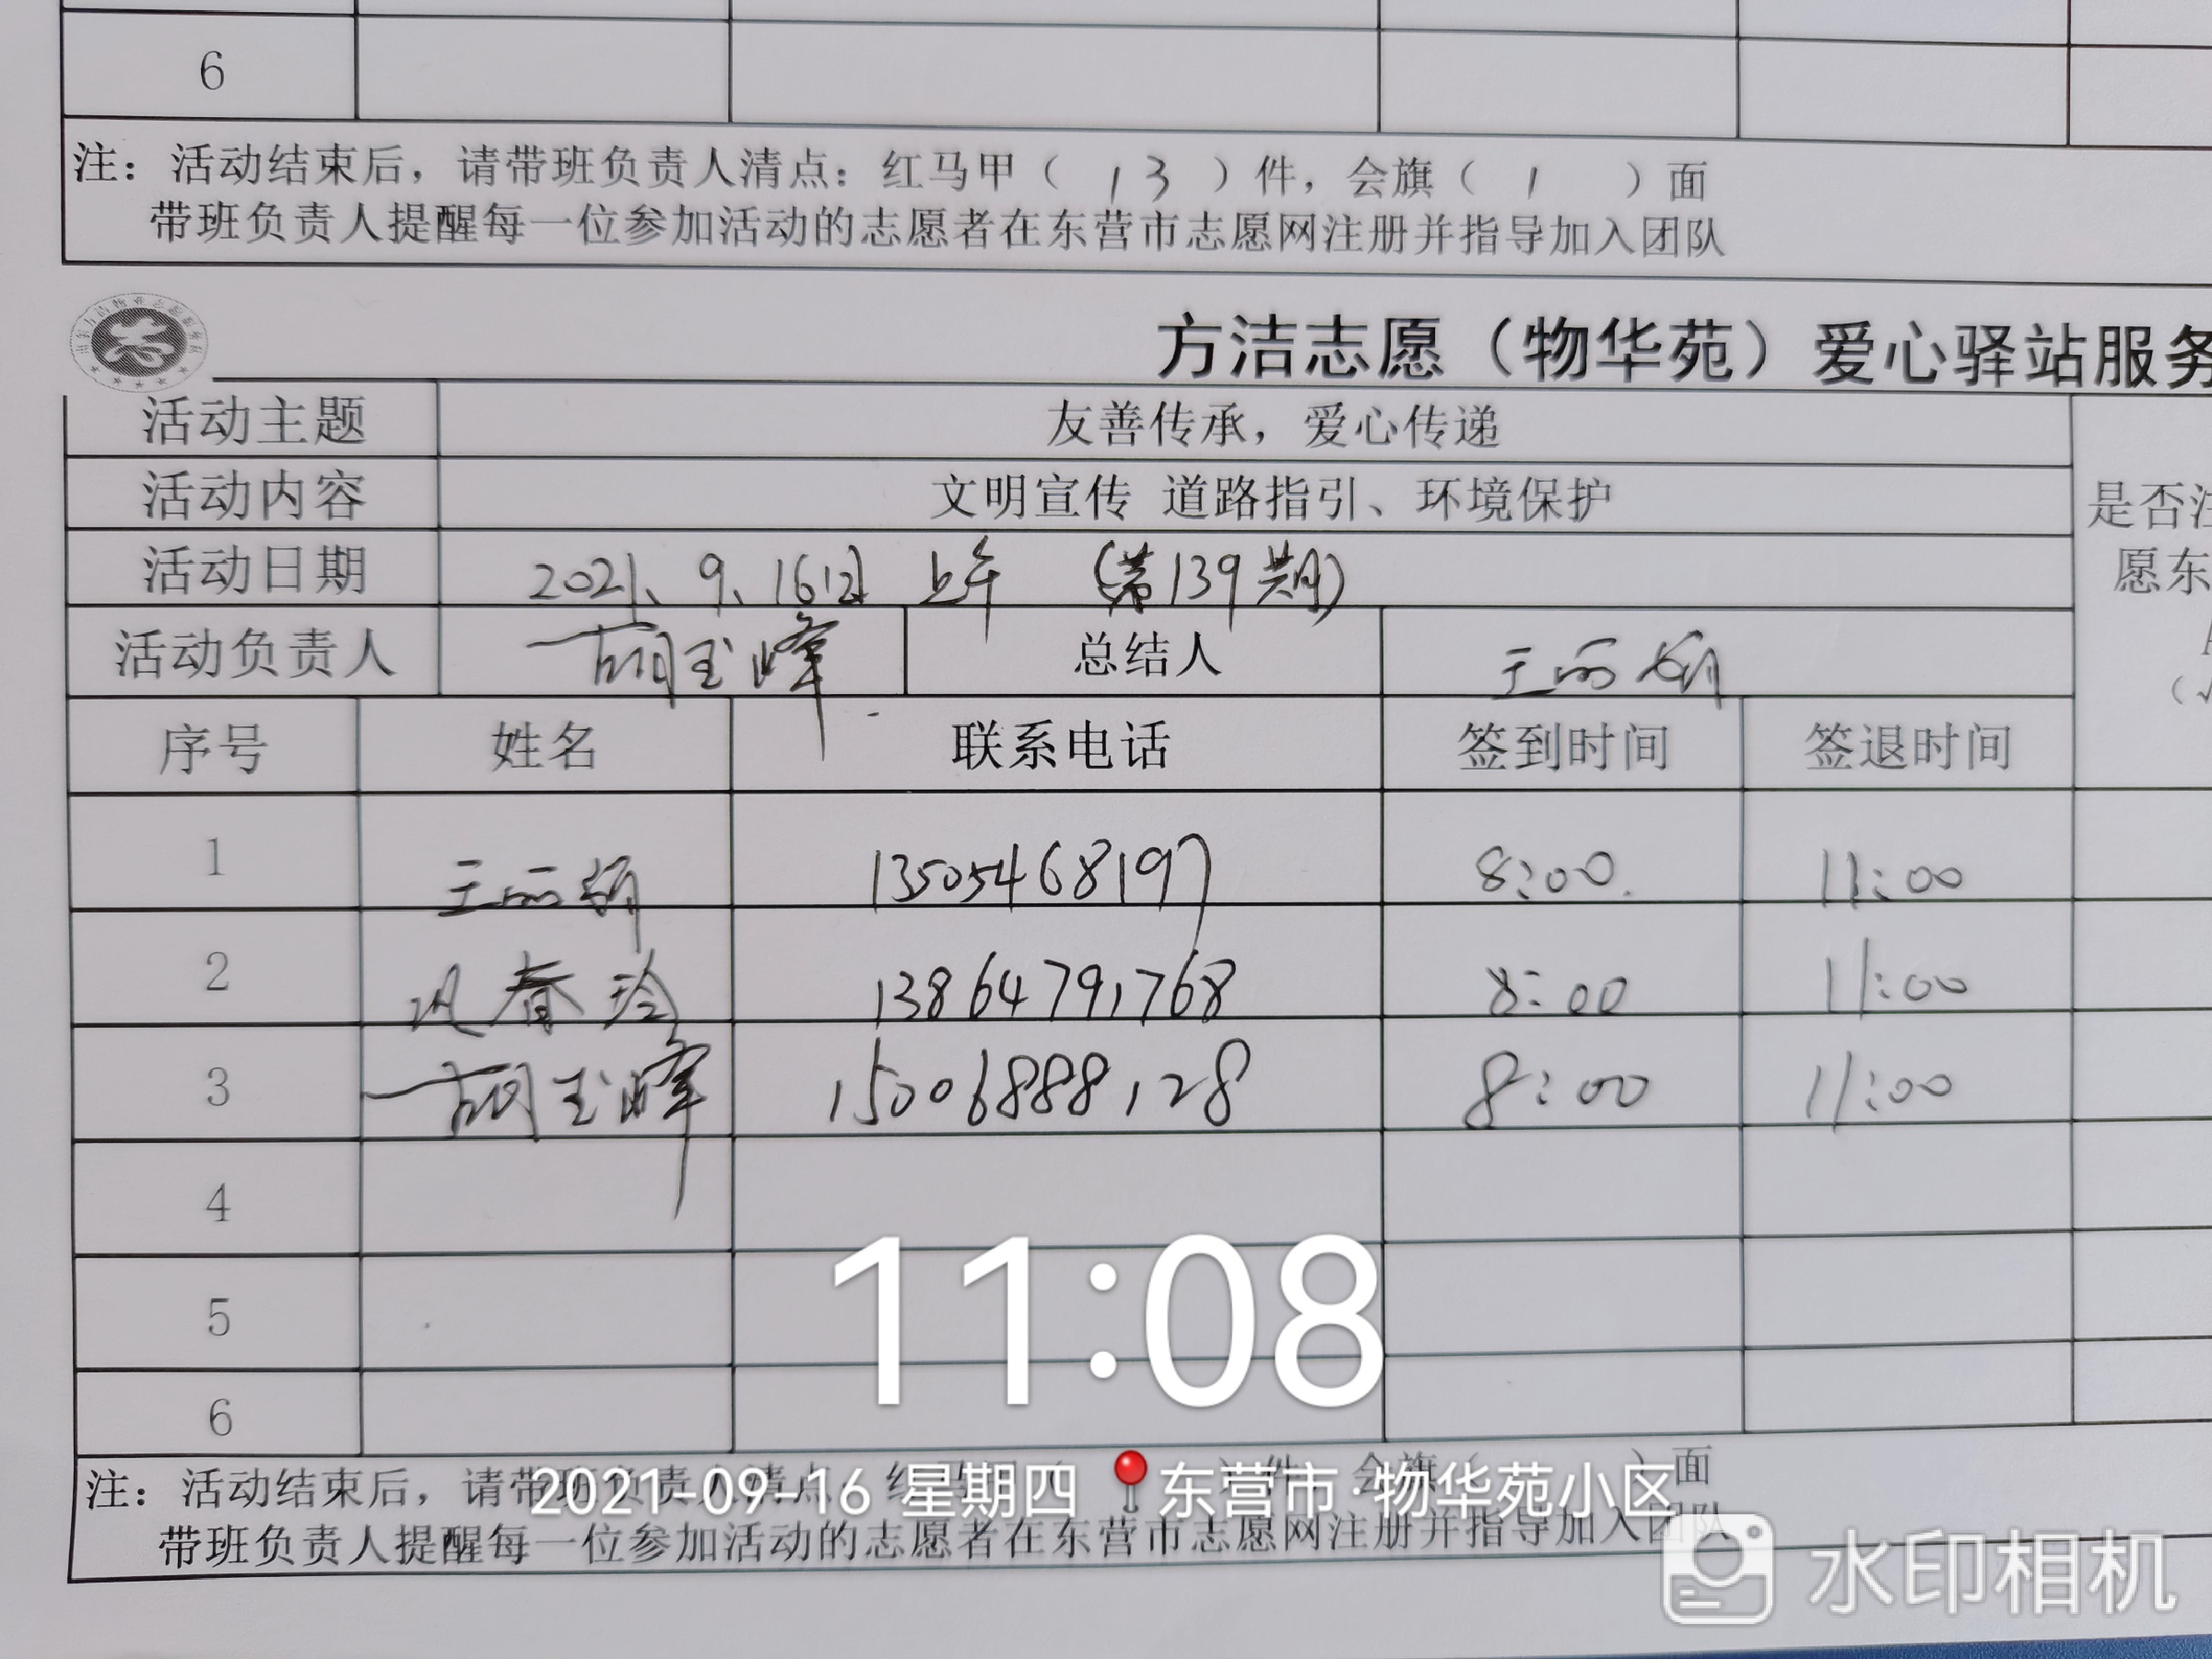 6
注：活动结束后，请带班负责人清点：红马甲（ 13 ）件，会旗（ 1 ）面
带班负责人提醒每一位参加活动的志愿者在东营市志愿网注册并指导加入团队
方洁志愿（物华苑）爱心驿站服务
活动主题 友善传承，爱心传递
活动内容 文明宣传 道路指引、环境保护
是否注
愿东
活动日期 2021、9、16日 上午 (第139期)
活动负责人 胡玉峰 总结人 王丽娟
序号 姓名 联系电话 签到时间 签退时间
1 王丽娟 13505468197 8:00 11:00
2 春玲 13864791768 8:00 11:00
3 胡玉峰 15006888128 8:00 11:00
4
5
6
11:08
注：活动结束后，请带班负责人清点：红马甲（ ）件，会旗（ ）面
2021-09-16 星期四 东营市·物华苑小区
带班负责人提醒每一位参加活动的志愿者在东营市志愿网注册并指导加入团队
水印相机